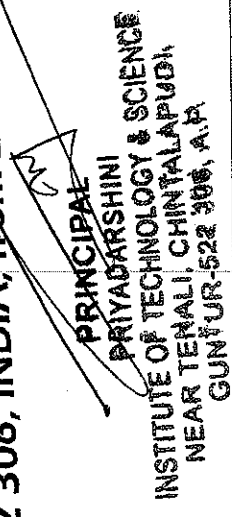 306, INDIA,
PRINCIPAL
PRIYADARSHINI
INSTITUTE OF TECHNOLOGY & SCIENCE
NEAR TENALI, CHINTALAPUDI,
GUNTUR-522 306, A.P.